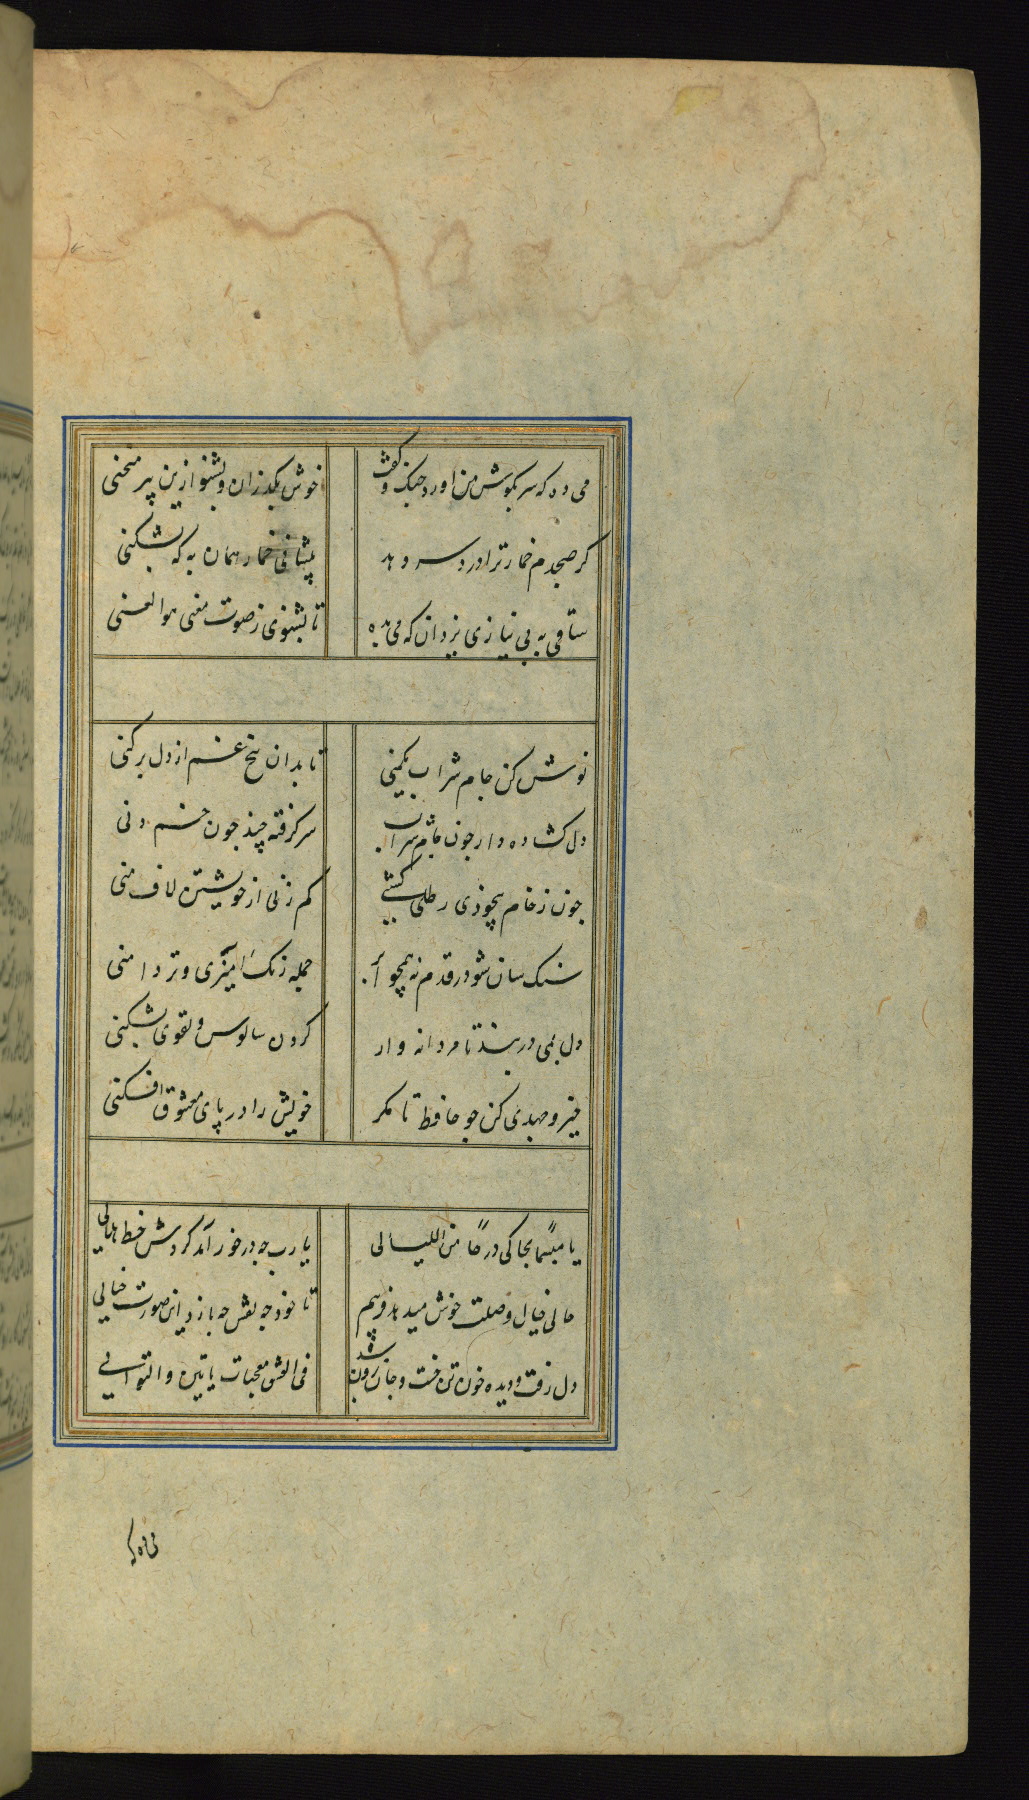 می ده که سر بگوش من آورد چنگ و گفت خوش بگذران و بشنو ازین پیر منحنی
گر صبحدم خمار ترا درد سر دهد پیشانی خمار همان به که بشکنی
ساقی به بی نیازی یزدان که می بده تا بشنوی ز صوت مغنی هو الغنی
نوش کن جام شراب یکمنی تا بدان بیخ غم از دل برکنی
دل گشاده دار چون جام شراب سر گرفته چند چون خم دنی
چون ز خام بیخودی رطلی کشی کم زنی از خویشتن لاف منی
سنک سان شو در قدم نه همچو آب جمله رنک آمیزی و تر دامنی
دل بمی دربند تا مردانه وار گردن سالوس و تقوی بشکنی
خیز و جهدی کن چو حافظ تا مگر خویش را در پای معشوق افکنی
یا مبسما یحاکی درجا من اللیالی یا رب چه در خور آمد گردش خط هلالی
حالی خیال وصلت خوش میدهد فریبم تا خود چه نقش بازد این صورت خیالی
دل رفت و دیده خون شد تن خست و جان زبون شد فی العشق معجبات یاتین و التوالی